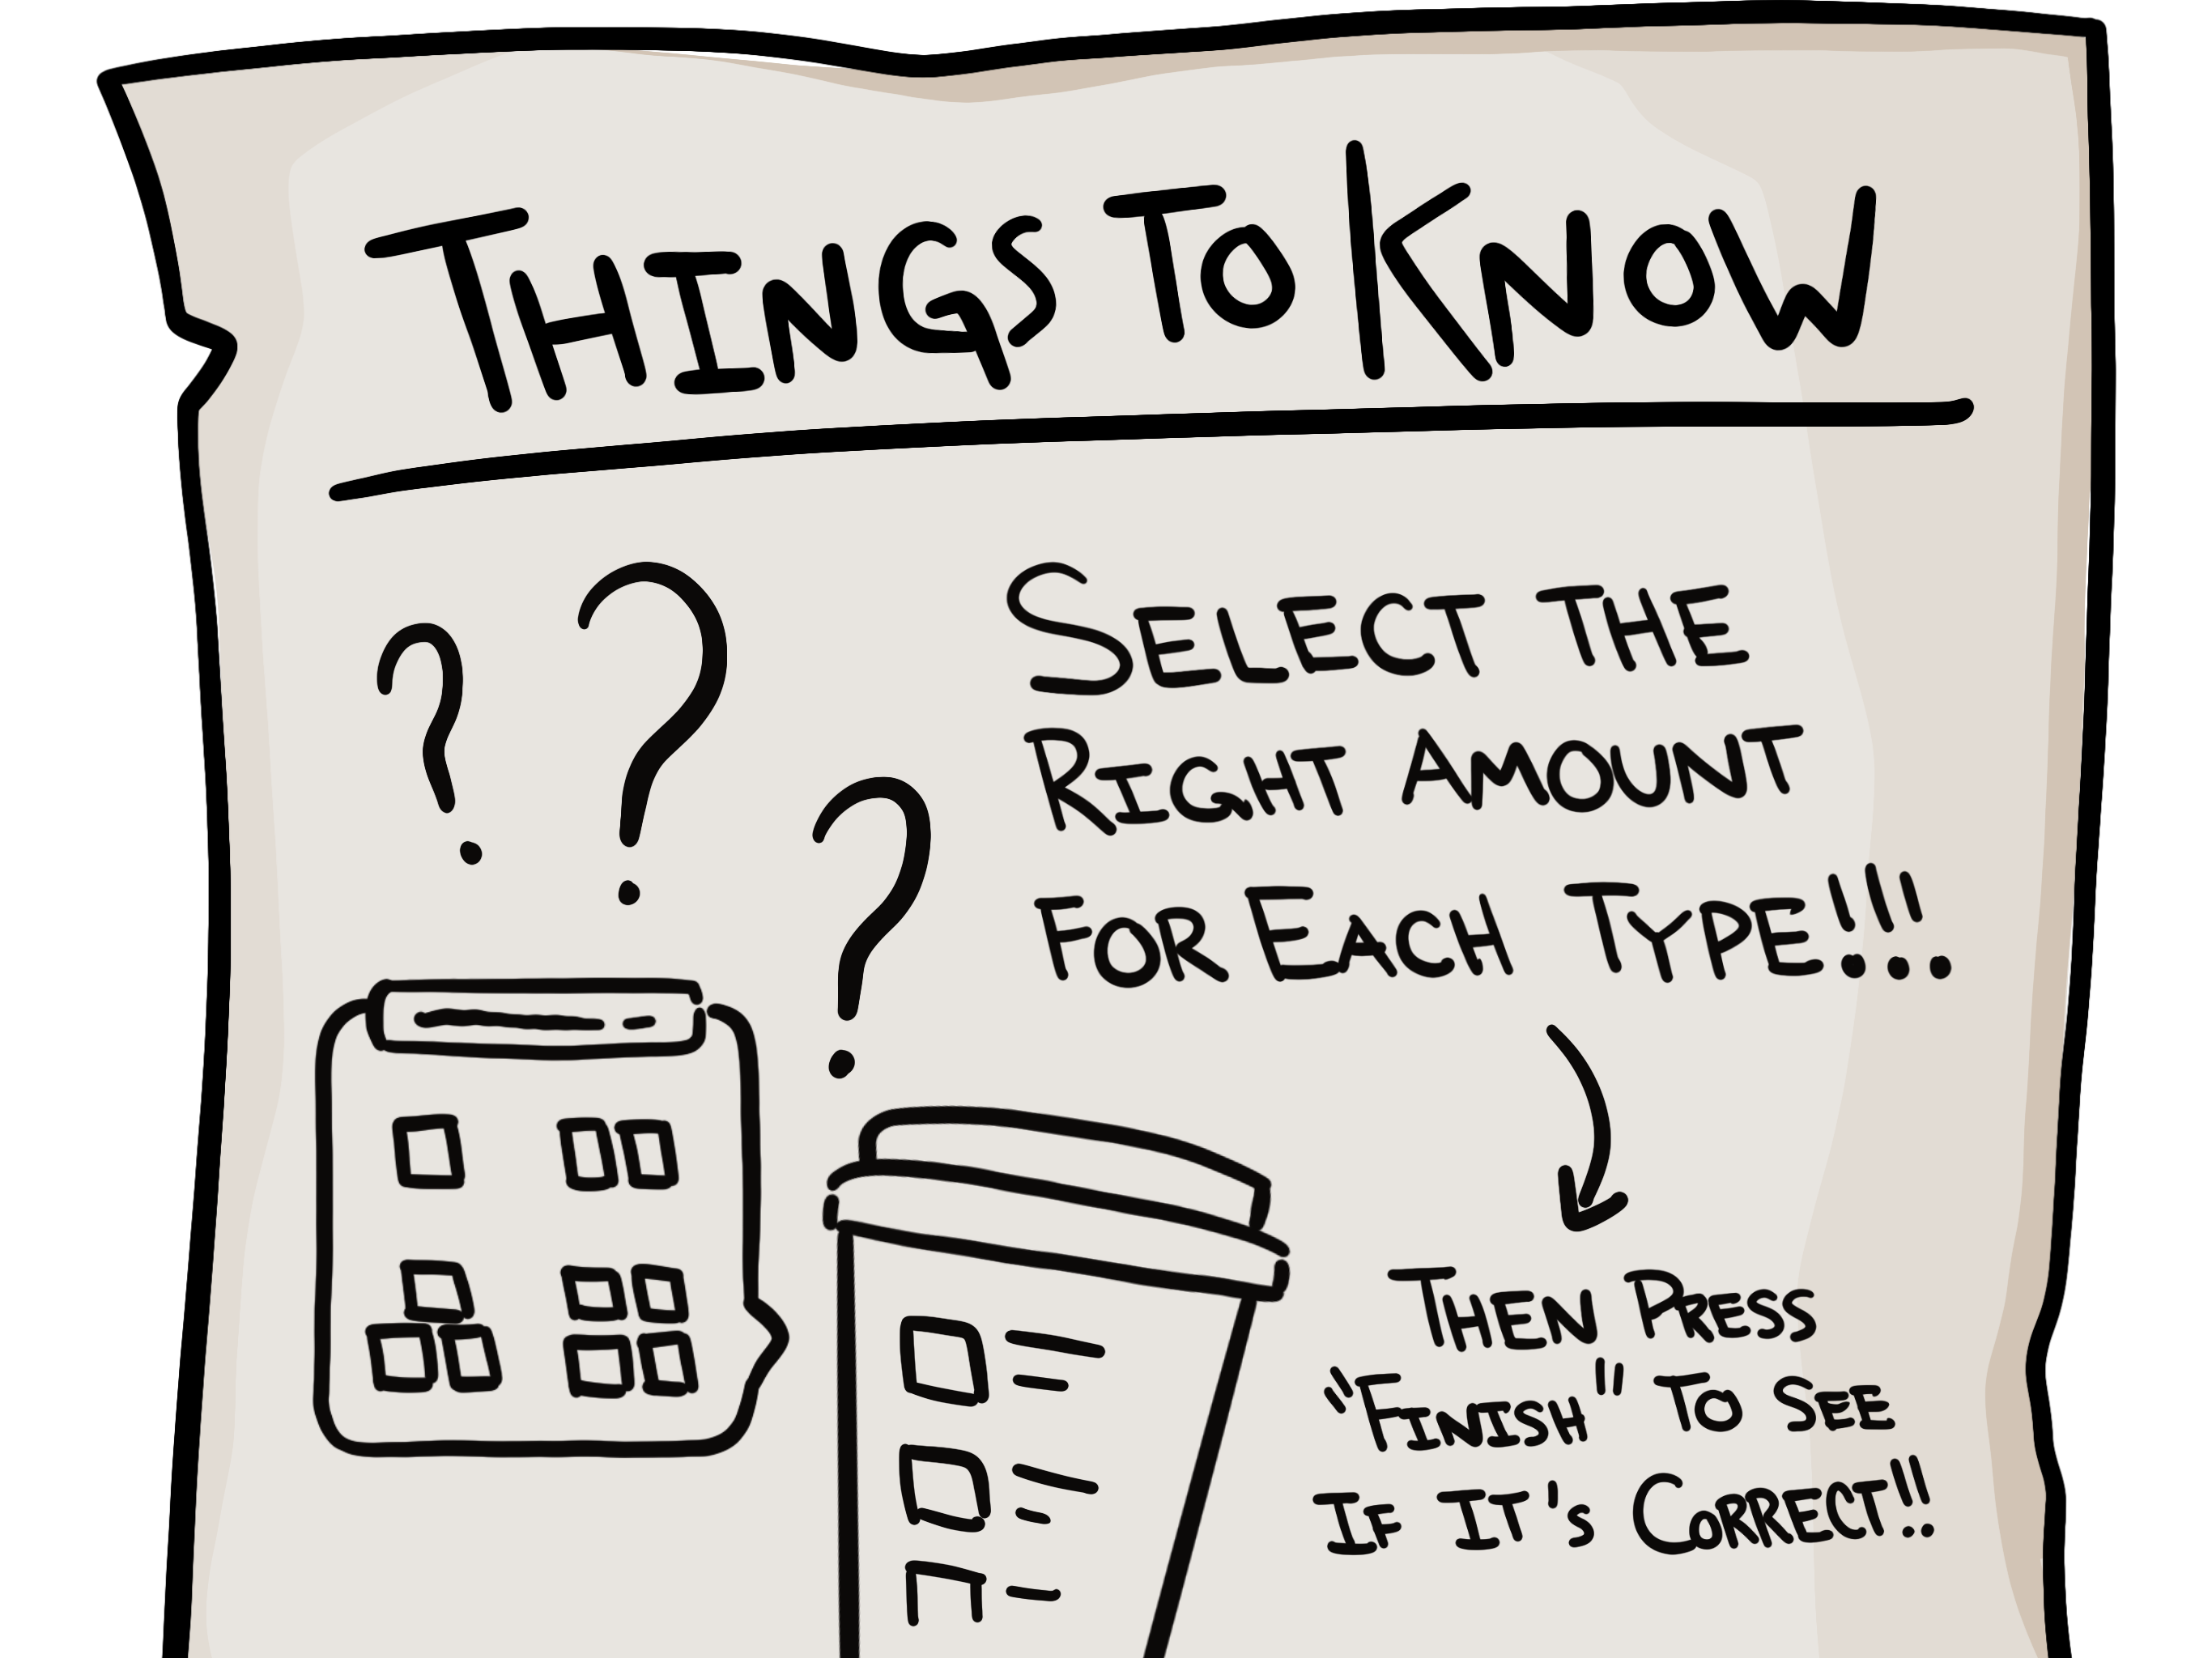 THINGS TO KNOW
SELECT THE
RIGHT AMOUNT
FOR EACH TYPE!!!
THEN PRESS
"FINISH" TO SEE
IF IT'S CORRECT!!
? ? ?